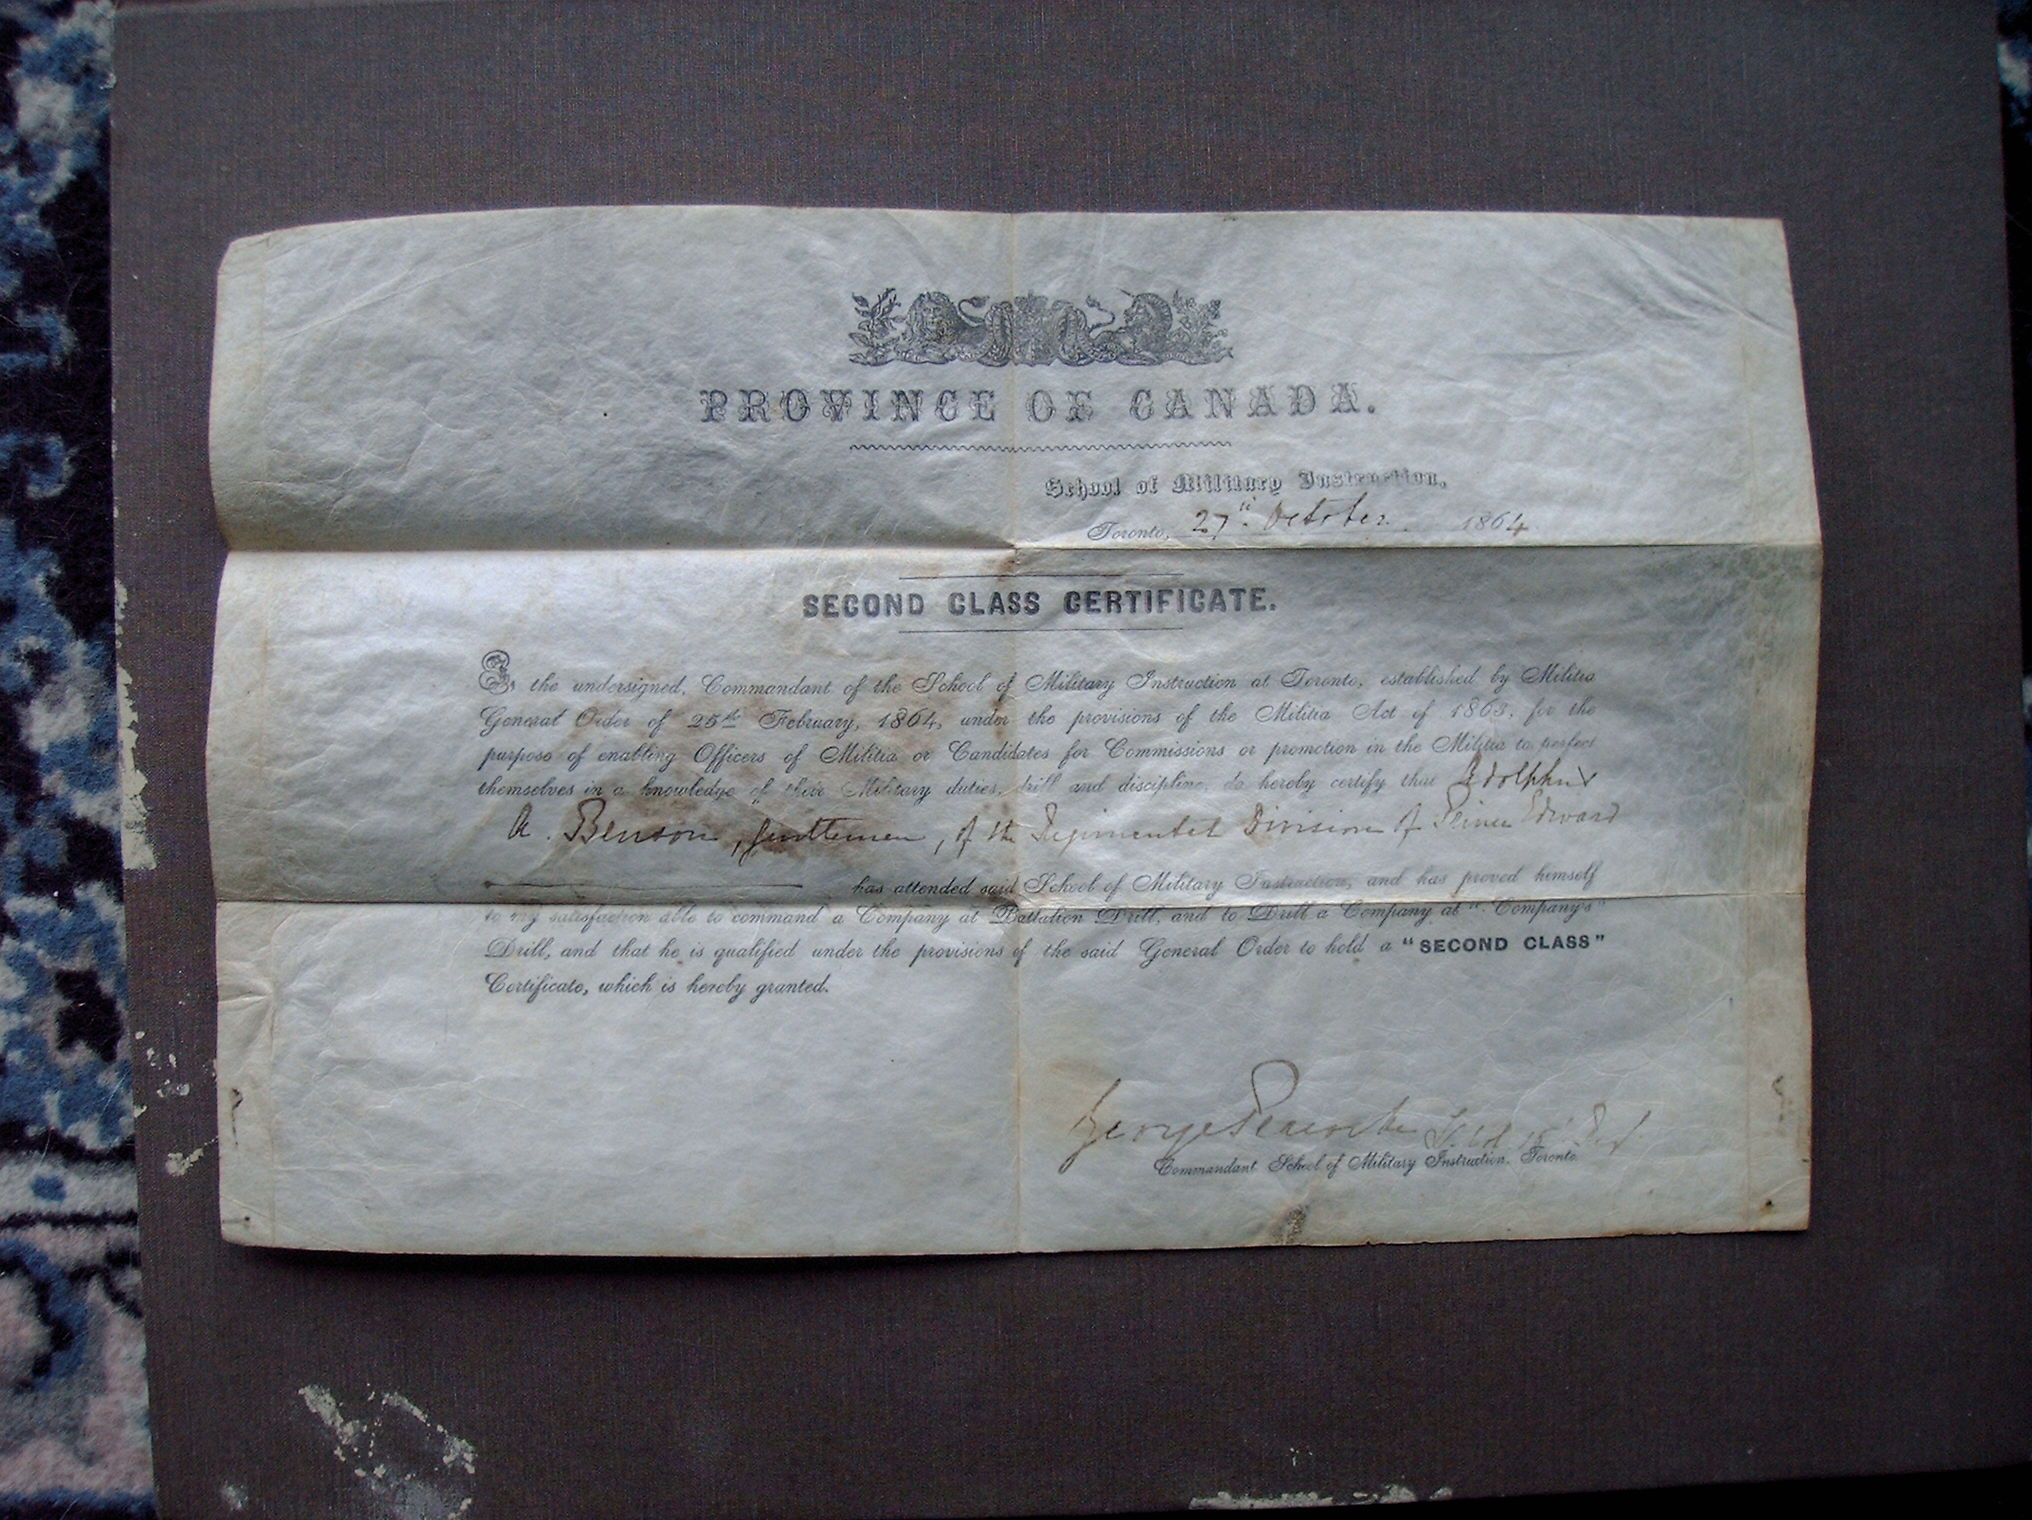 PROVINCE OF CANADA.
School of Military Instruction,
Toronto, 27th October 1864
SECOND CLASS CERTIFICATE.
I, the undersigned, Commandant of the School of Military Instruction at Toronto, established by Militia
General Order of 25th February, 1864, under the provisions of the Militia Act of 1863, for the
purpose of enabling Officers of Militia or Candidates for Commissions or promotion in the Militia to perfect
themselves in a knowledge of their Military duties, drill and discipline, do hereby certify that Adolphus
A. Benson, gentleman, of the Regimental Division of Prince Edward
has attended said School of Military Instruction, and has proved himself
to my satisfaction able to command a Company at Battalion Drill, and to Drill a Company at "Company's"
Drill, and that he is qualified under the provisions of the said General Order to hold a "SECOND CLASS"
Certificate, which is hereby granted.
George
Commandant School of Military Instruction, Toronto.